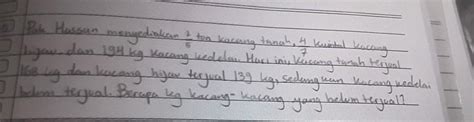 Pak Hassan menyediakan 2/5 ton kacang tanah, 4/7 kuintal kacang
hijau, dan 194 kg kacang kedelai. Hari ini kacang tanah terjual
168 kg dan kacang hijau terjual 139 kg, sedangkan kacang kedelai
belum terjual. Berapa kg kacang-kacang yang belum terjual?